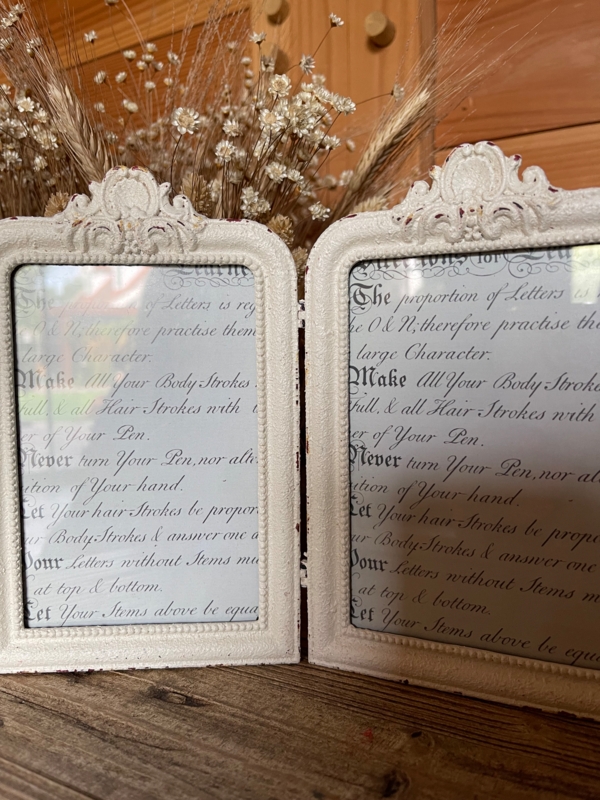 Learne
The proportion of Letters is reg
O & N; therefore practise them
large Character.
Make All Your Body-Strokes
full, & all Hair-Strokes with
er of Your Pen.
Never turn Your Pen, nor alte
ition of Your hand.
Let Your hair-Strokes be propor
ur Body-Strokes & answer one a
Your Letters without Items mu
at top & bottom.
Let Your Items above be equa
Directions for Lea
The proportion of Letters is
he O & N; therefore practise the
large Character.
Make All Your Body-Stroke
full, & all Hair-Strokes with
er of Your Pen.
Never turn Your Pen, nor al
ition of Your hand.
Let Your hair-Strokes be propo
ur Body-Strokes & answer one
Your Letters without Items m
at top & bottom.
Let Your Items above be equa